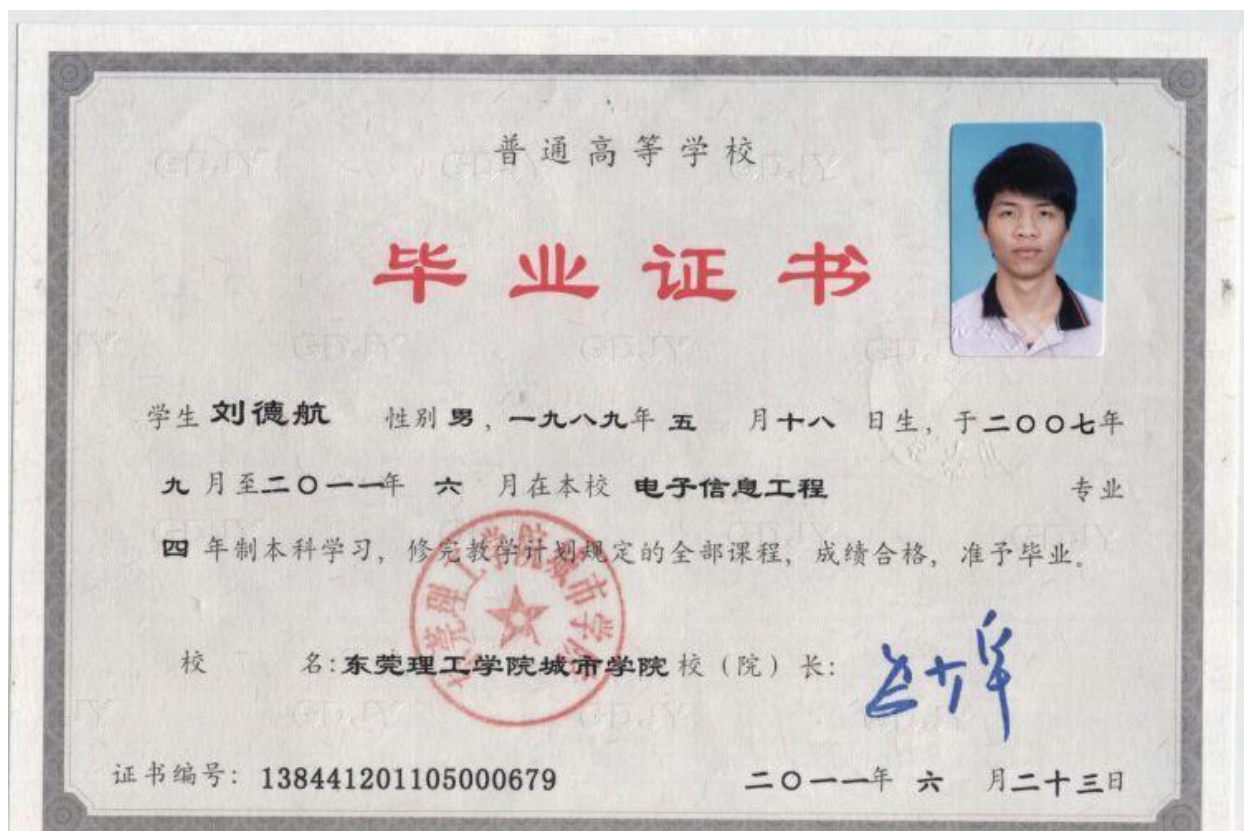 普通高等学校
毕业证书
学生 刘德航 性别 男，一九八九年 五 月十八 日生，于二〇〇七年
九 月至二〇一一年 六 月在本校 电子信息工程 专业
四 年制本科学习，修完教学计划规定的全部课程，成绩合格，准予毕业。
东莞理工学院城市学院
校 名：东莞理工学院城市学院 校（院）长：
证书编号：138441201105000679 二〇一一年 六 月二十三日